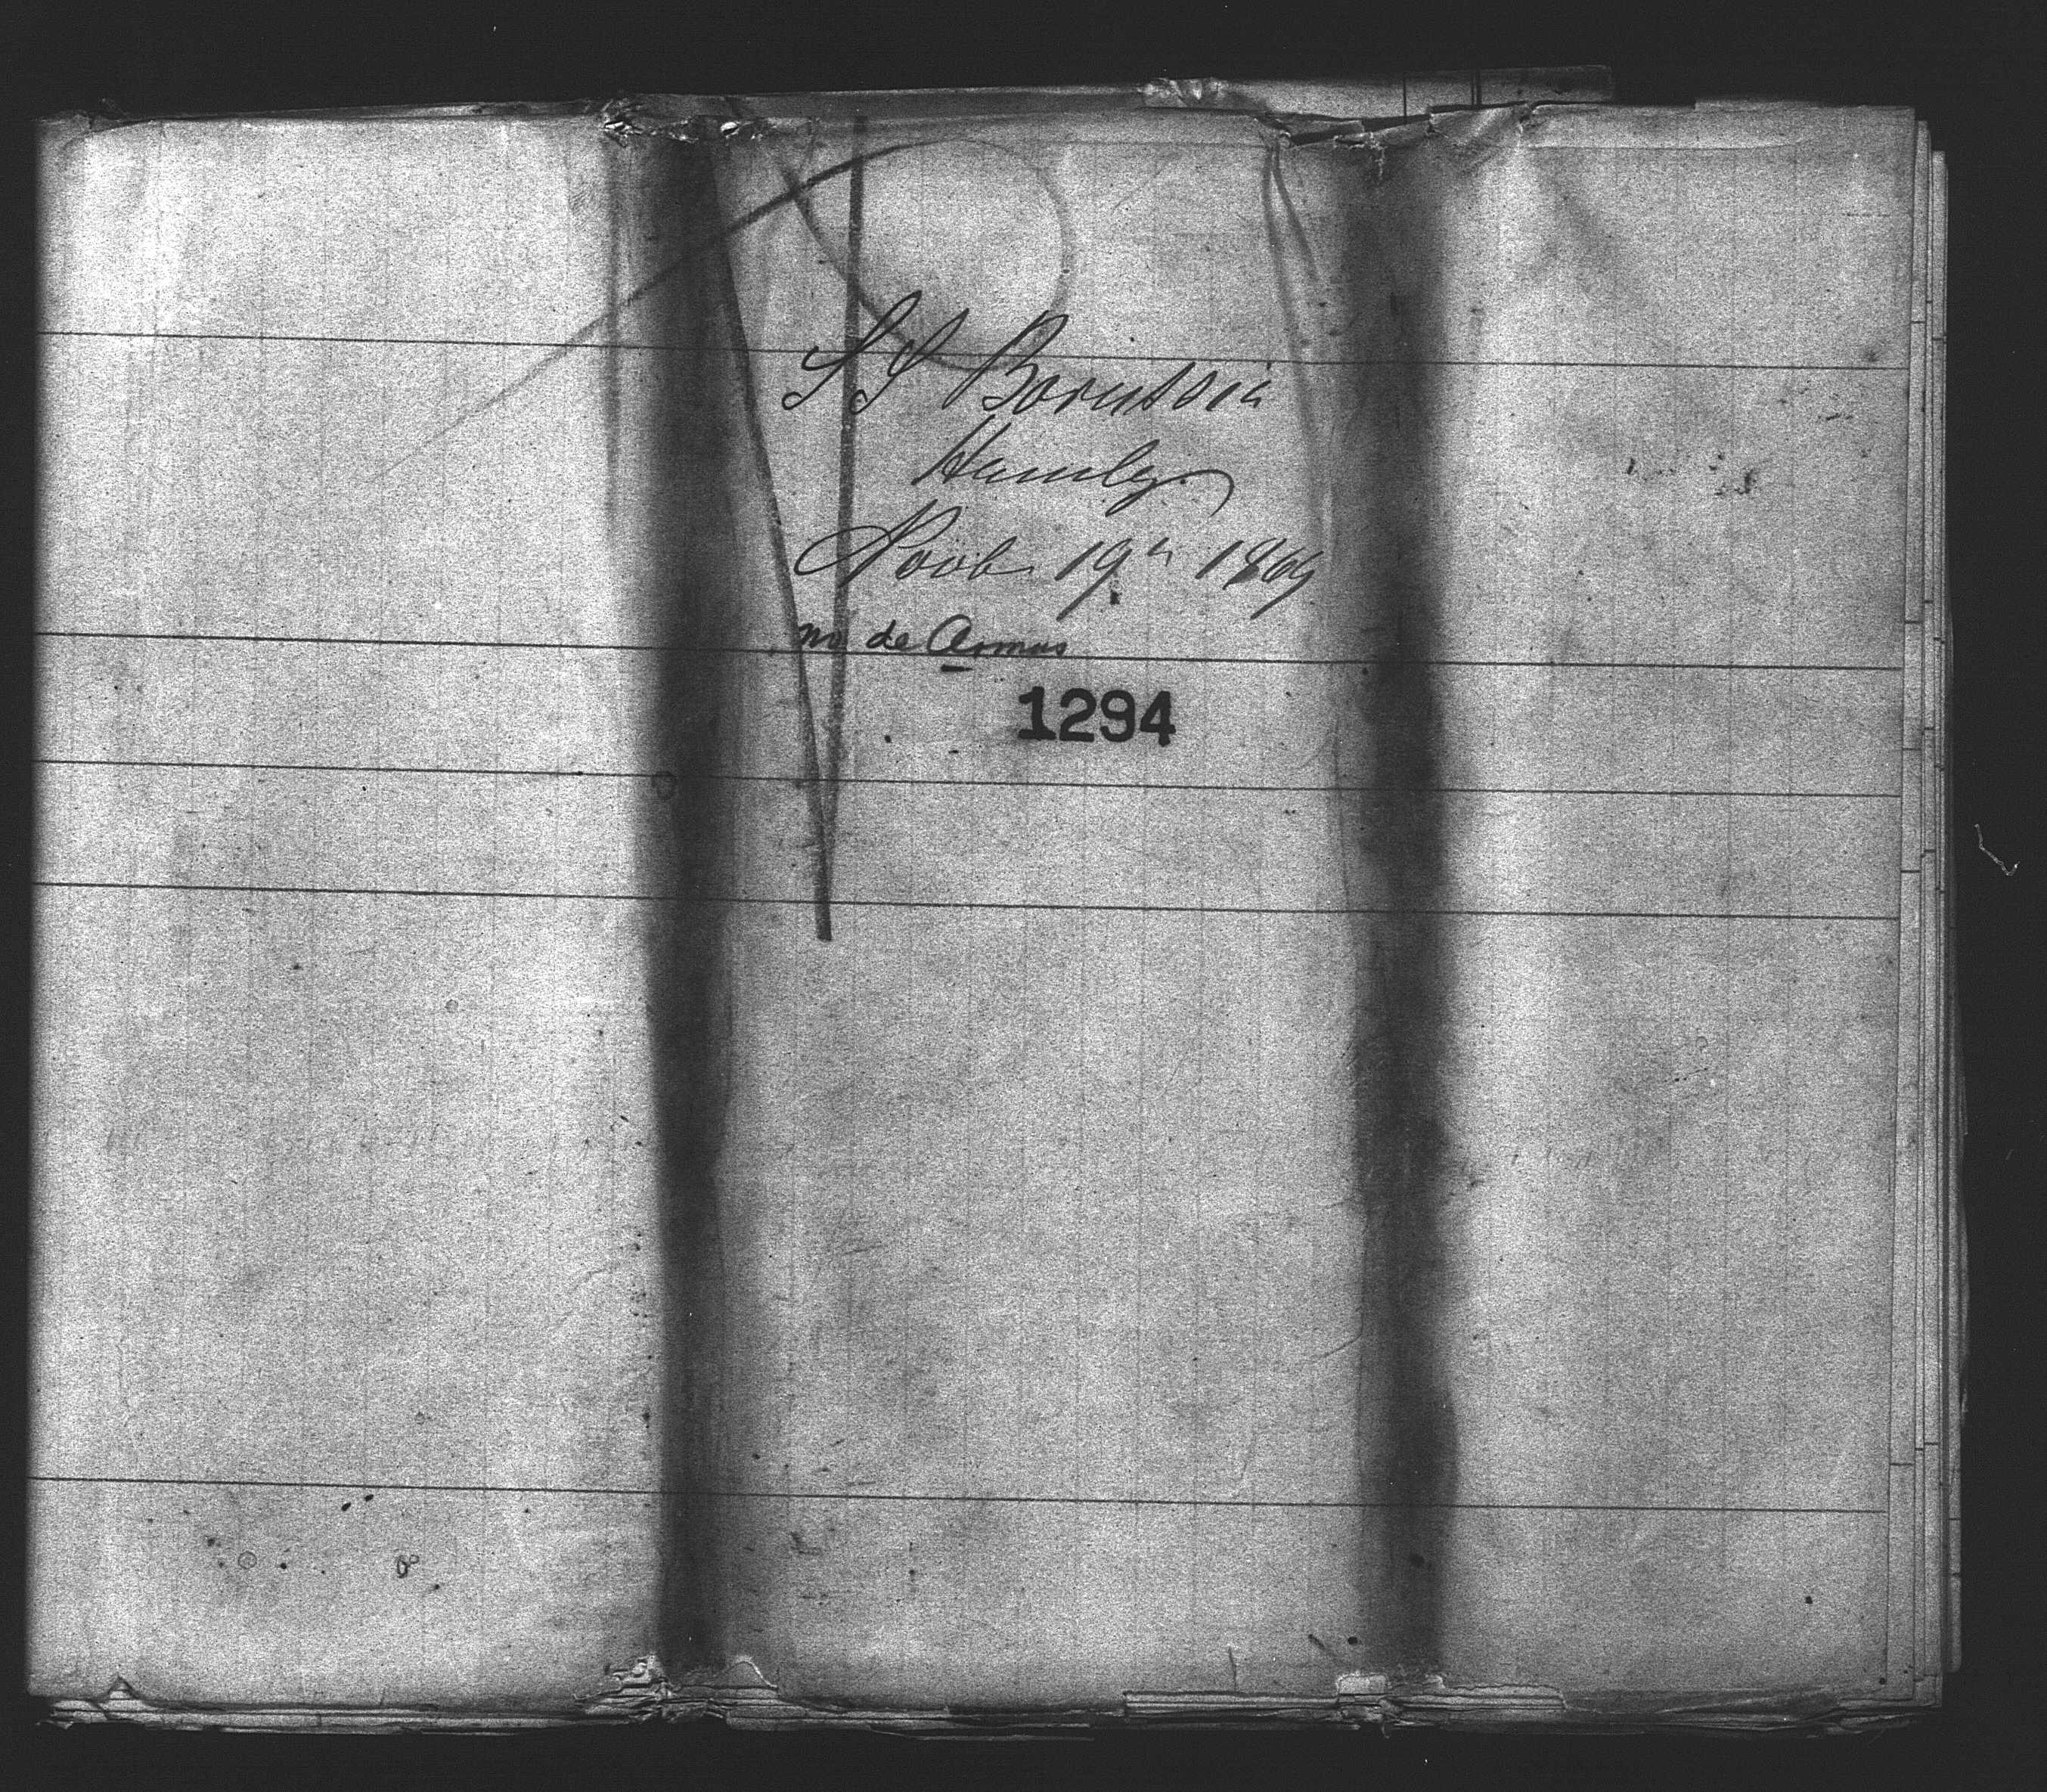 SS Borussia
Hamburg
Novb 19th 1869
no de Armas
1294